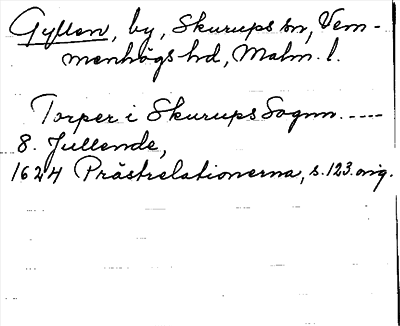 Gyllen, by, Skurups sn, Vem-
menhögs hd, Malm. l.
Torper i Skurups Sognn.----
8. Jullende,
1624 Prästrelationerna, s. 123. orig.